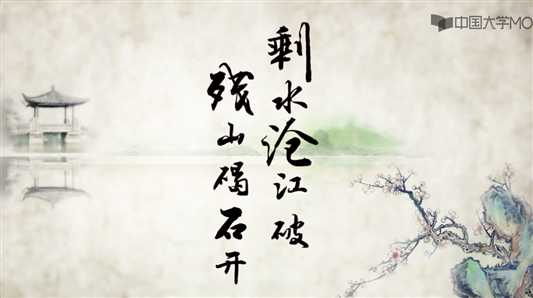 中国大学MO
剩水沧江破
残山碣石开